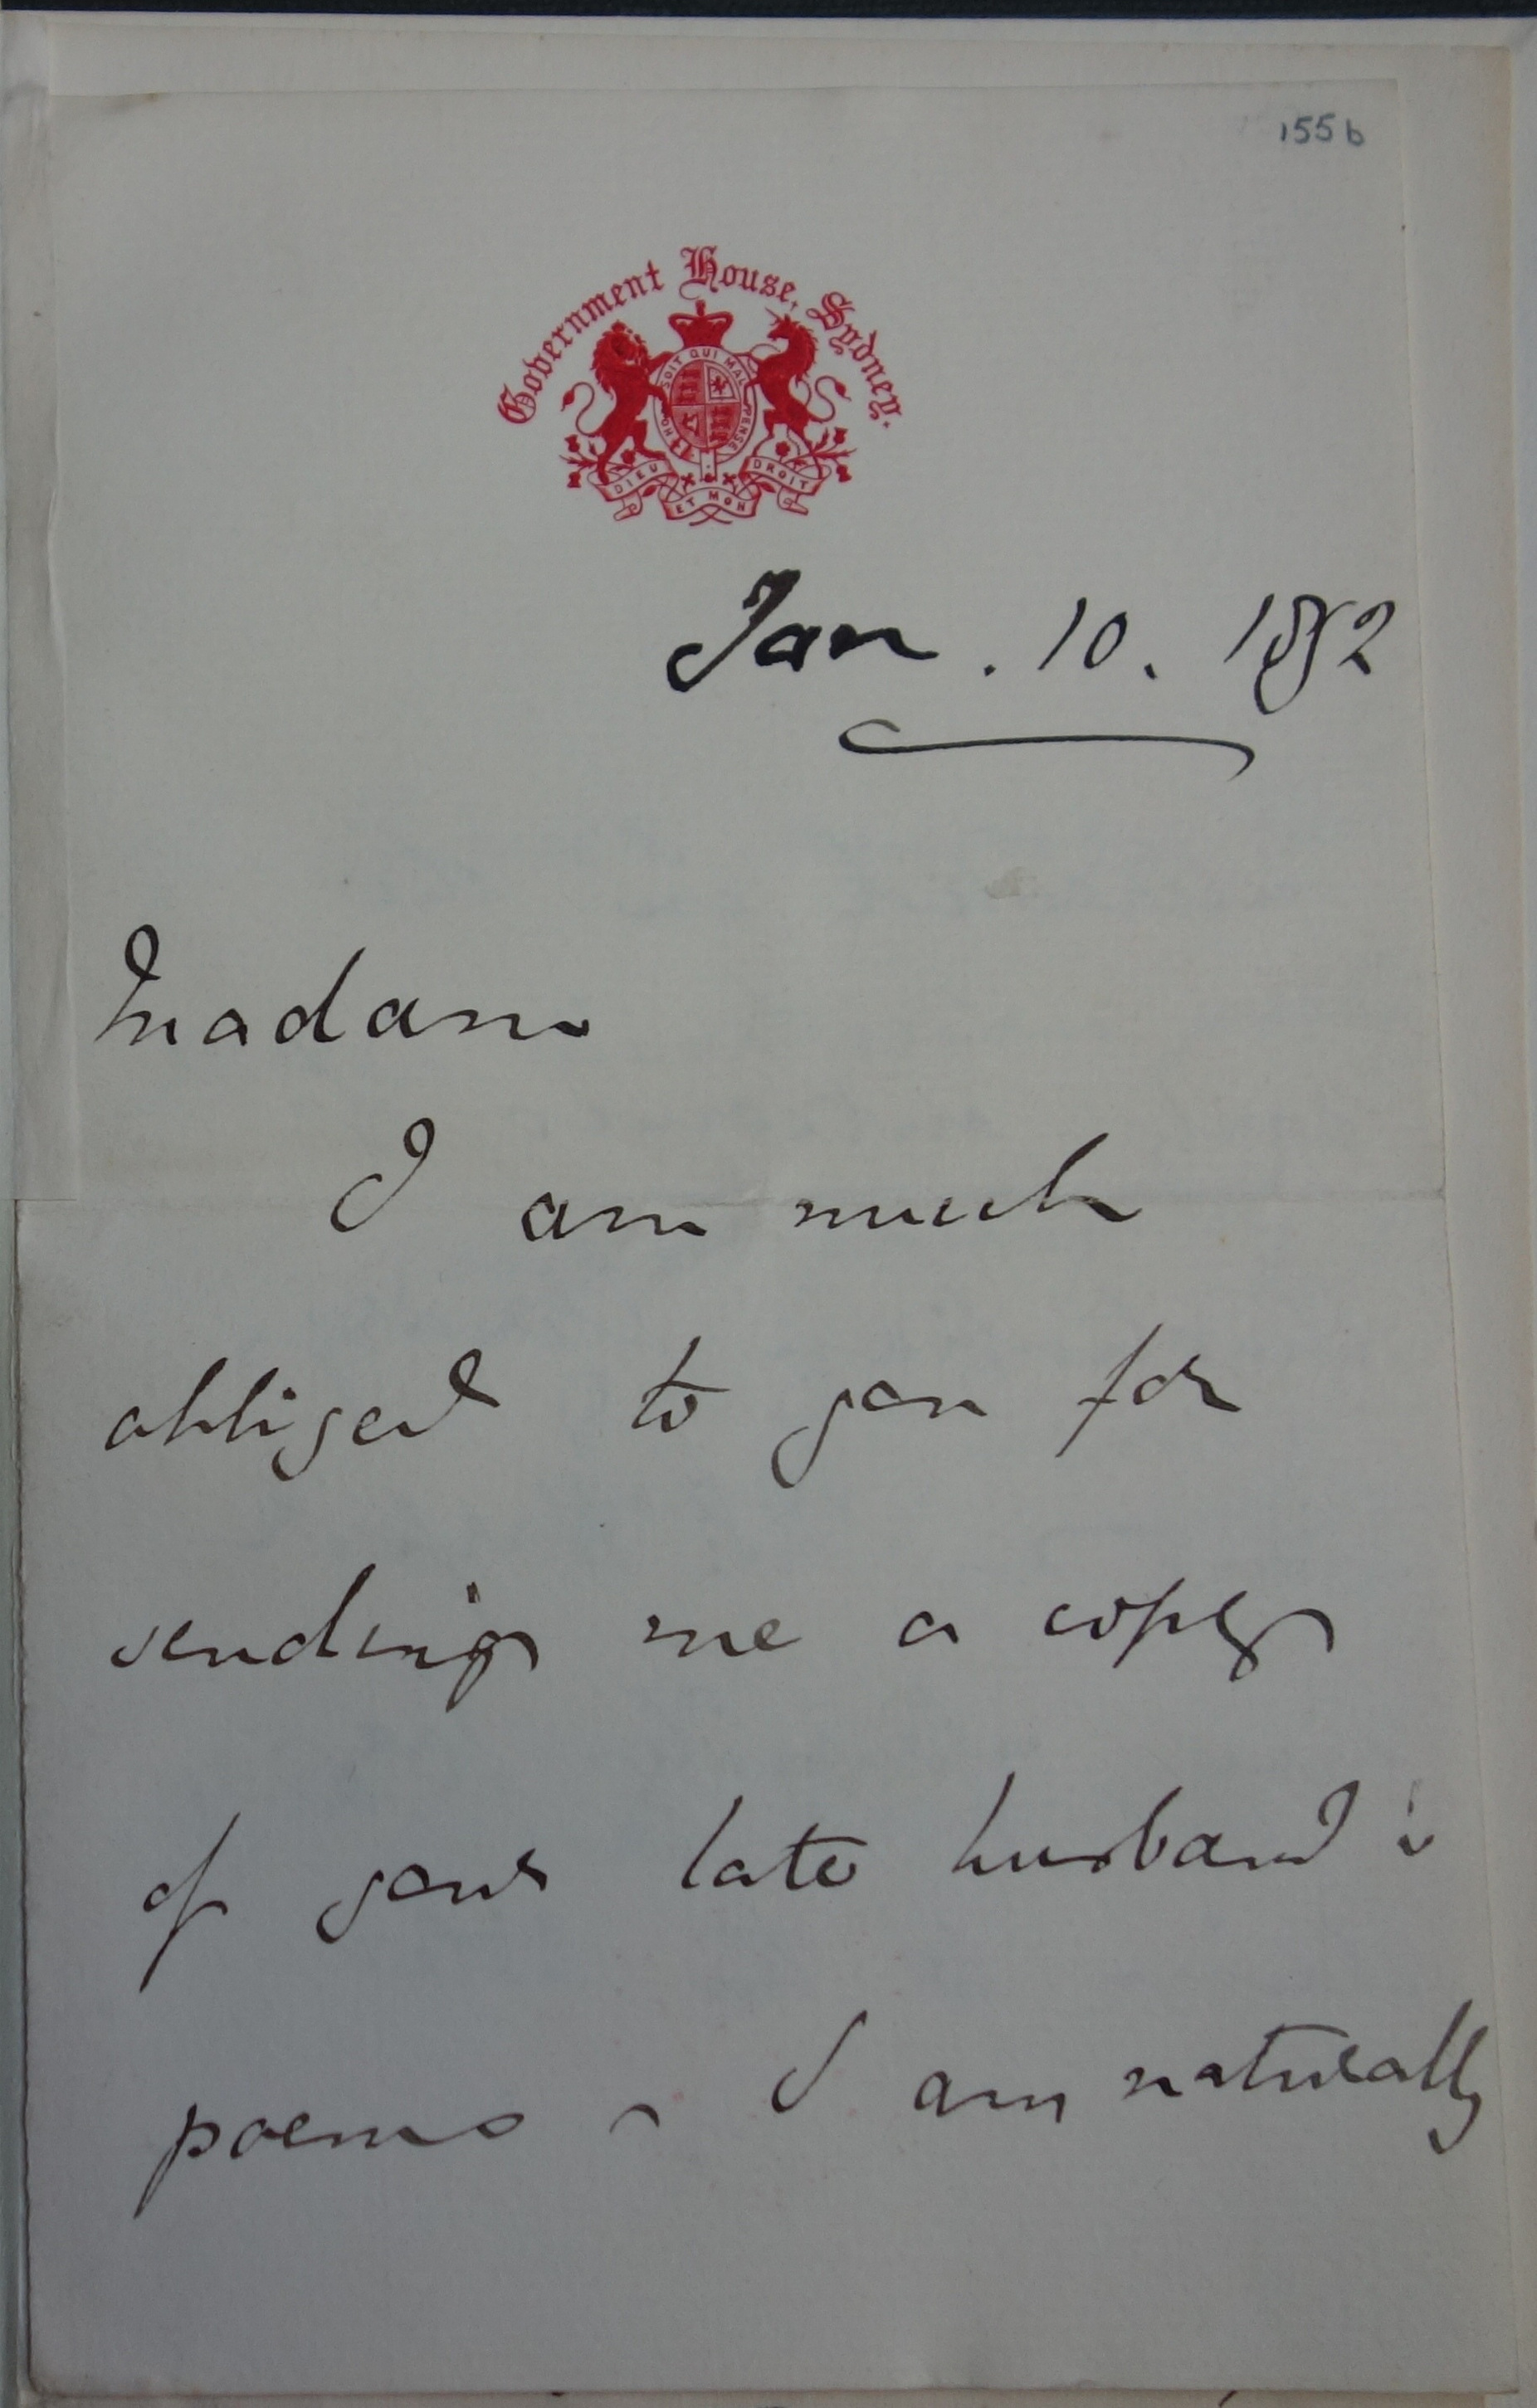 155b
Government House, Sydney.
HONI SOIT QUI MAL Y PENSE
DIEU ET MON DROIT
Jan. 10.
Madam
I am much
obliged to you for
sending me a copy
of your late husband's
poems - I am naturally